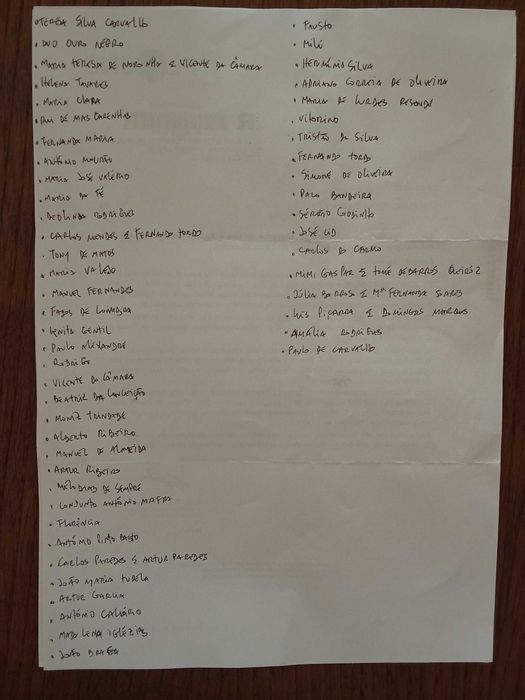 Teresa Silva Carvalho
• Duo Ouro Negro
• Maria Teresa de Noronha e Vicente da Câmara
• Helena Tavares
• Maria Clara
• Rui de Mascarenhas
• Fernanda Maria
• António Mourão
• Maria José Valério
• Maria da Fé
• Deolinda Rodrigues
• Carlos Mendes e Fernando Tordo
• Tony de Matos
• Maria Valejo
• Manuel Fernandes
• Fados de Coimbra
• Gentil
• Paulo Alexandre
• Rodrigo
• Vicente da Câmara
• Beatriz da Conceição
• Moniz Trindade
• Alberto Ribeiro
• Manuel de Almeida
• Artur Ribeiro
• Melodias de Sempre
• Conjunto António Mafra
• Florência
• António Pinto Basto
• Carlos Paredes e Artur Paredes
• João Maria Tudela
• Artur Garcia
• António Calvário
• Madalena Iglézias
• João Braga
• Fausto
• Milú
• Hermínia Silva
• Adriano Correia de Oliveira
• Maria de Lurdes Resende
• Vitorino
• Tristão da Silva
• Fernando Tordo
• Simone de Oliveira
• Paco Bandeira
• Sérgio Godinho
• José Cid
• Carlos do Carmo
• Mimi Gaspar e Tomé de Barros Queiroz
• Júlia Barroso e Mª Fernanda Soares
• Luís Piçarra e Domingos Marques
• Amália Rodrigues
• Paulo de Carvalho